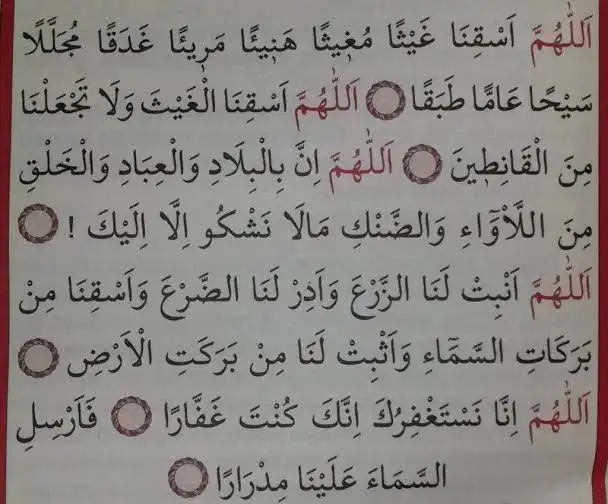 اَللّٰهُمَّ اَسْقِنَا غَيْثًا مُغ۪يثًا هَن۪يئًا مَر۪يئًا غَدَقًا مُجَلَّلًا
سَيْحًا عَامًّا طَبَقًا ۝ اَللّٰهُمَّ اَسْقِنَا الْغَيْثَ وَلَا تَجْعَلْنَا
مِنَ الْقَانِط۪ينَ ۝ اَللّٰهُمَّ اِنَّ بِالْبِلَادِ وَالْعِبَادِ وَالْخَلْقِ
مِنَ اللَّاْوَٓاءِ وَالضَّنْكِ مَالَا نَشْكُو اِلَّا اِلَيْكَ ! ۝
اَللّٰهُمَّ اَنْبِتْ لَنَا الزَّرْعَ وَاَدِرْ لَنَا الضَّرْعَ وَاَسْقِنَا مِنْ
بَرَكَاتِ السَّمَٓاءِ وَاَثْبِتْ لَنَا مِنْ بَرَكَتِ الْاَرْضِ ۝
اَللّٰهُمَّ اِنَّا نَسْتَغْفِرُكَ اِنَّكَ كُنْتَ غَفَّارًا ۝ فَاَرْسِلِ
السَّمَاءَ عَلَيْنَا مِدْرَارًا ۝